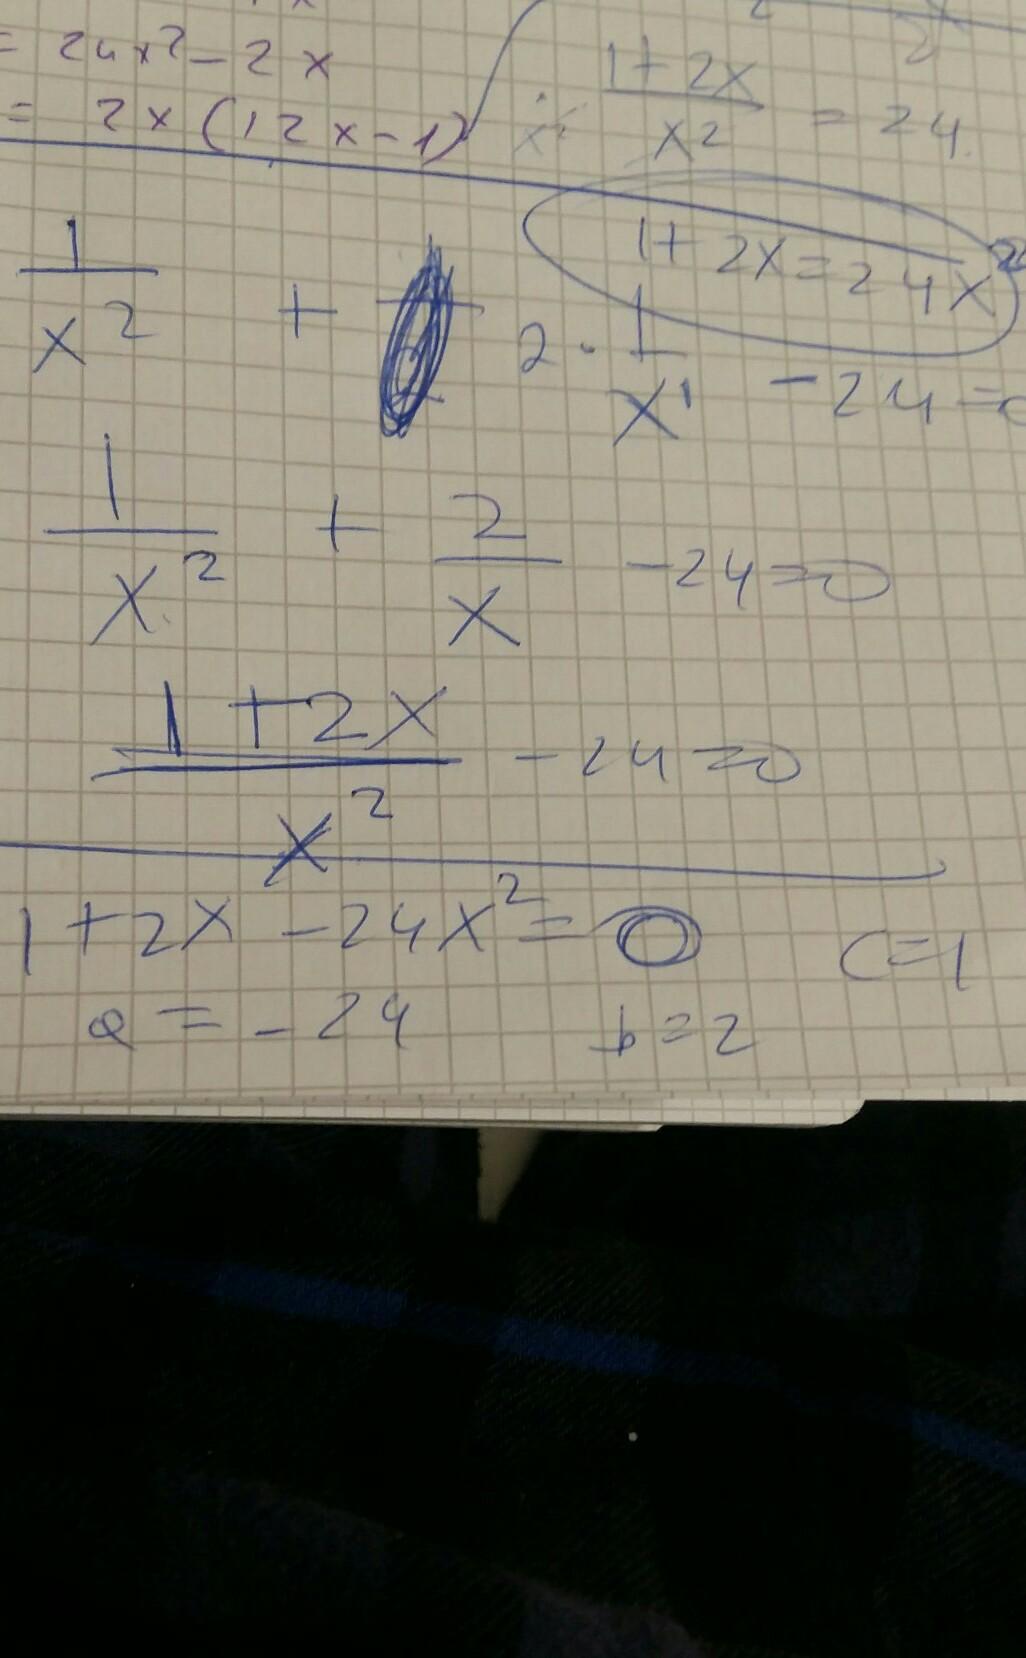 = 24x² - 2x
= 2x (12x - 1)
1 + 2x / x² = 24.
1 + 2x = 24x²
1/x² + 2 · 1/x¹ - 24 = 0
1/x² + 2/x - 24 = 0
1 + 2x / x² - 24 = 0
1 + 2x - 24x² = 0
c = 1
a = - 24 b = 2